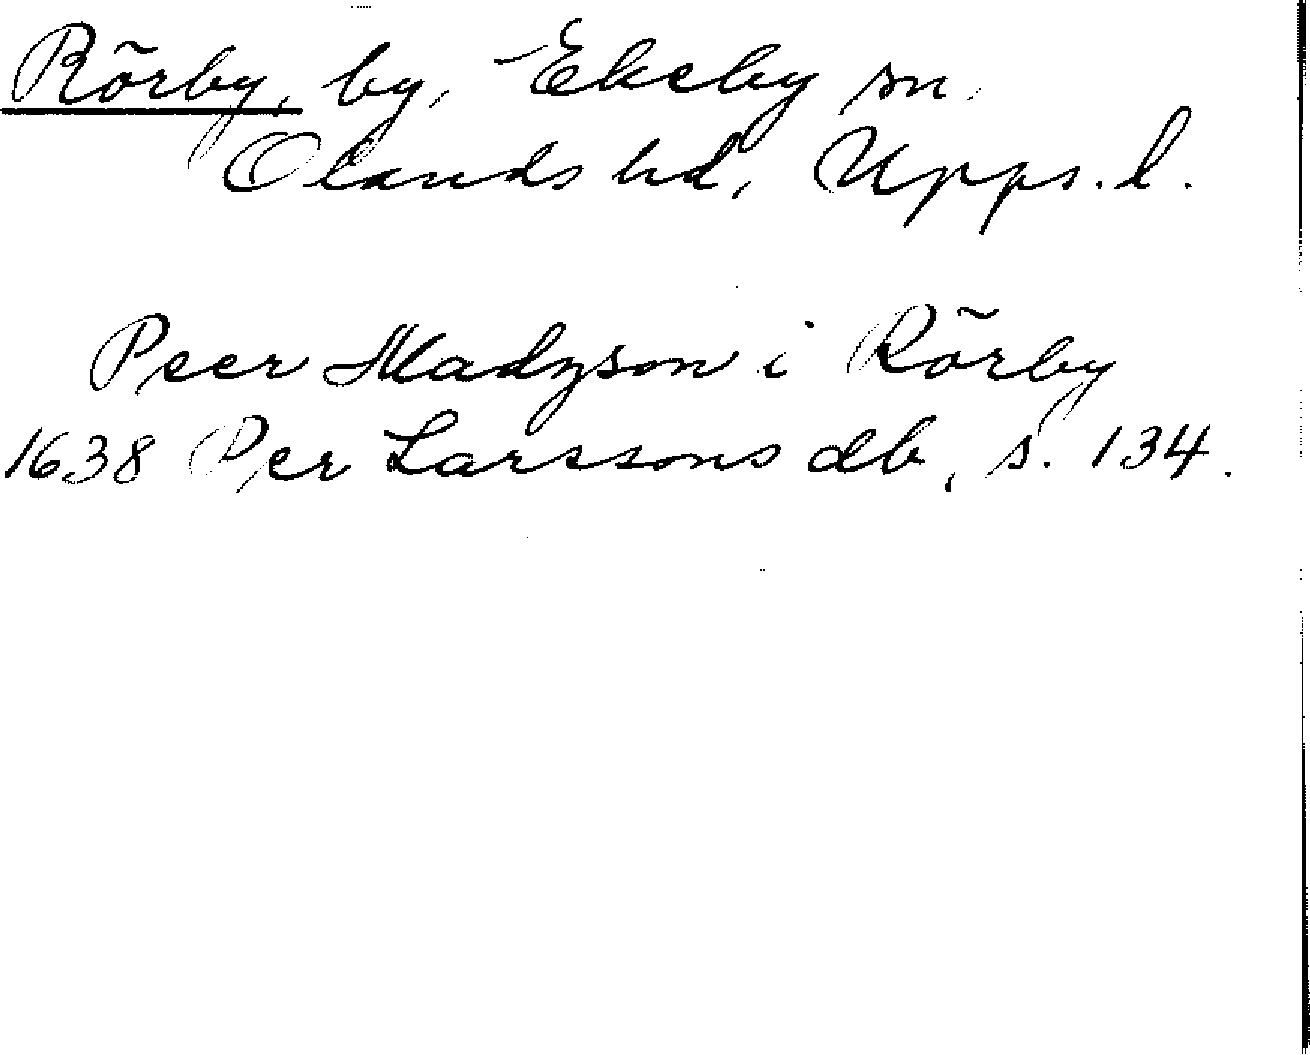 Rõrby, by, Ekeby sn.
Olands hd, Upps. l.
Peer Madzson i Rõrby
1638 Per Larssons db, s. 134.